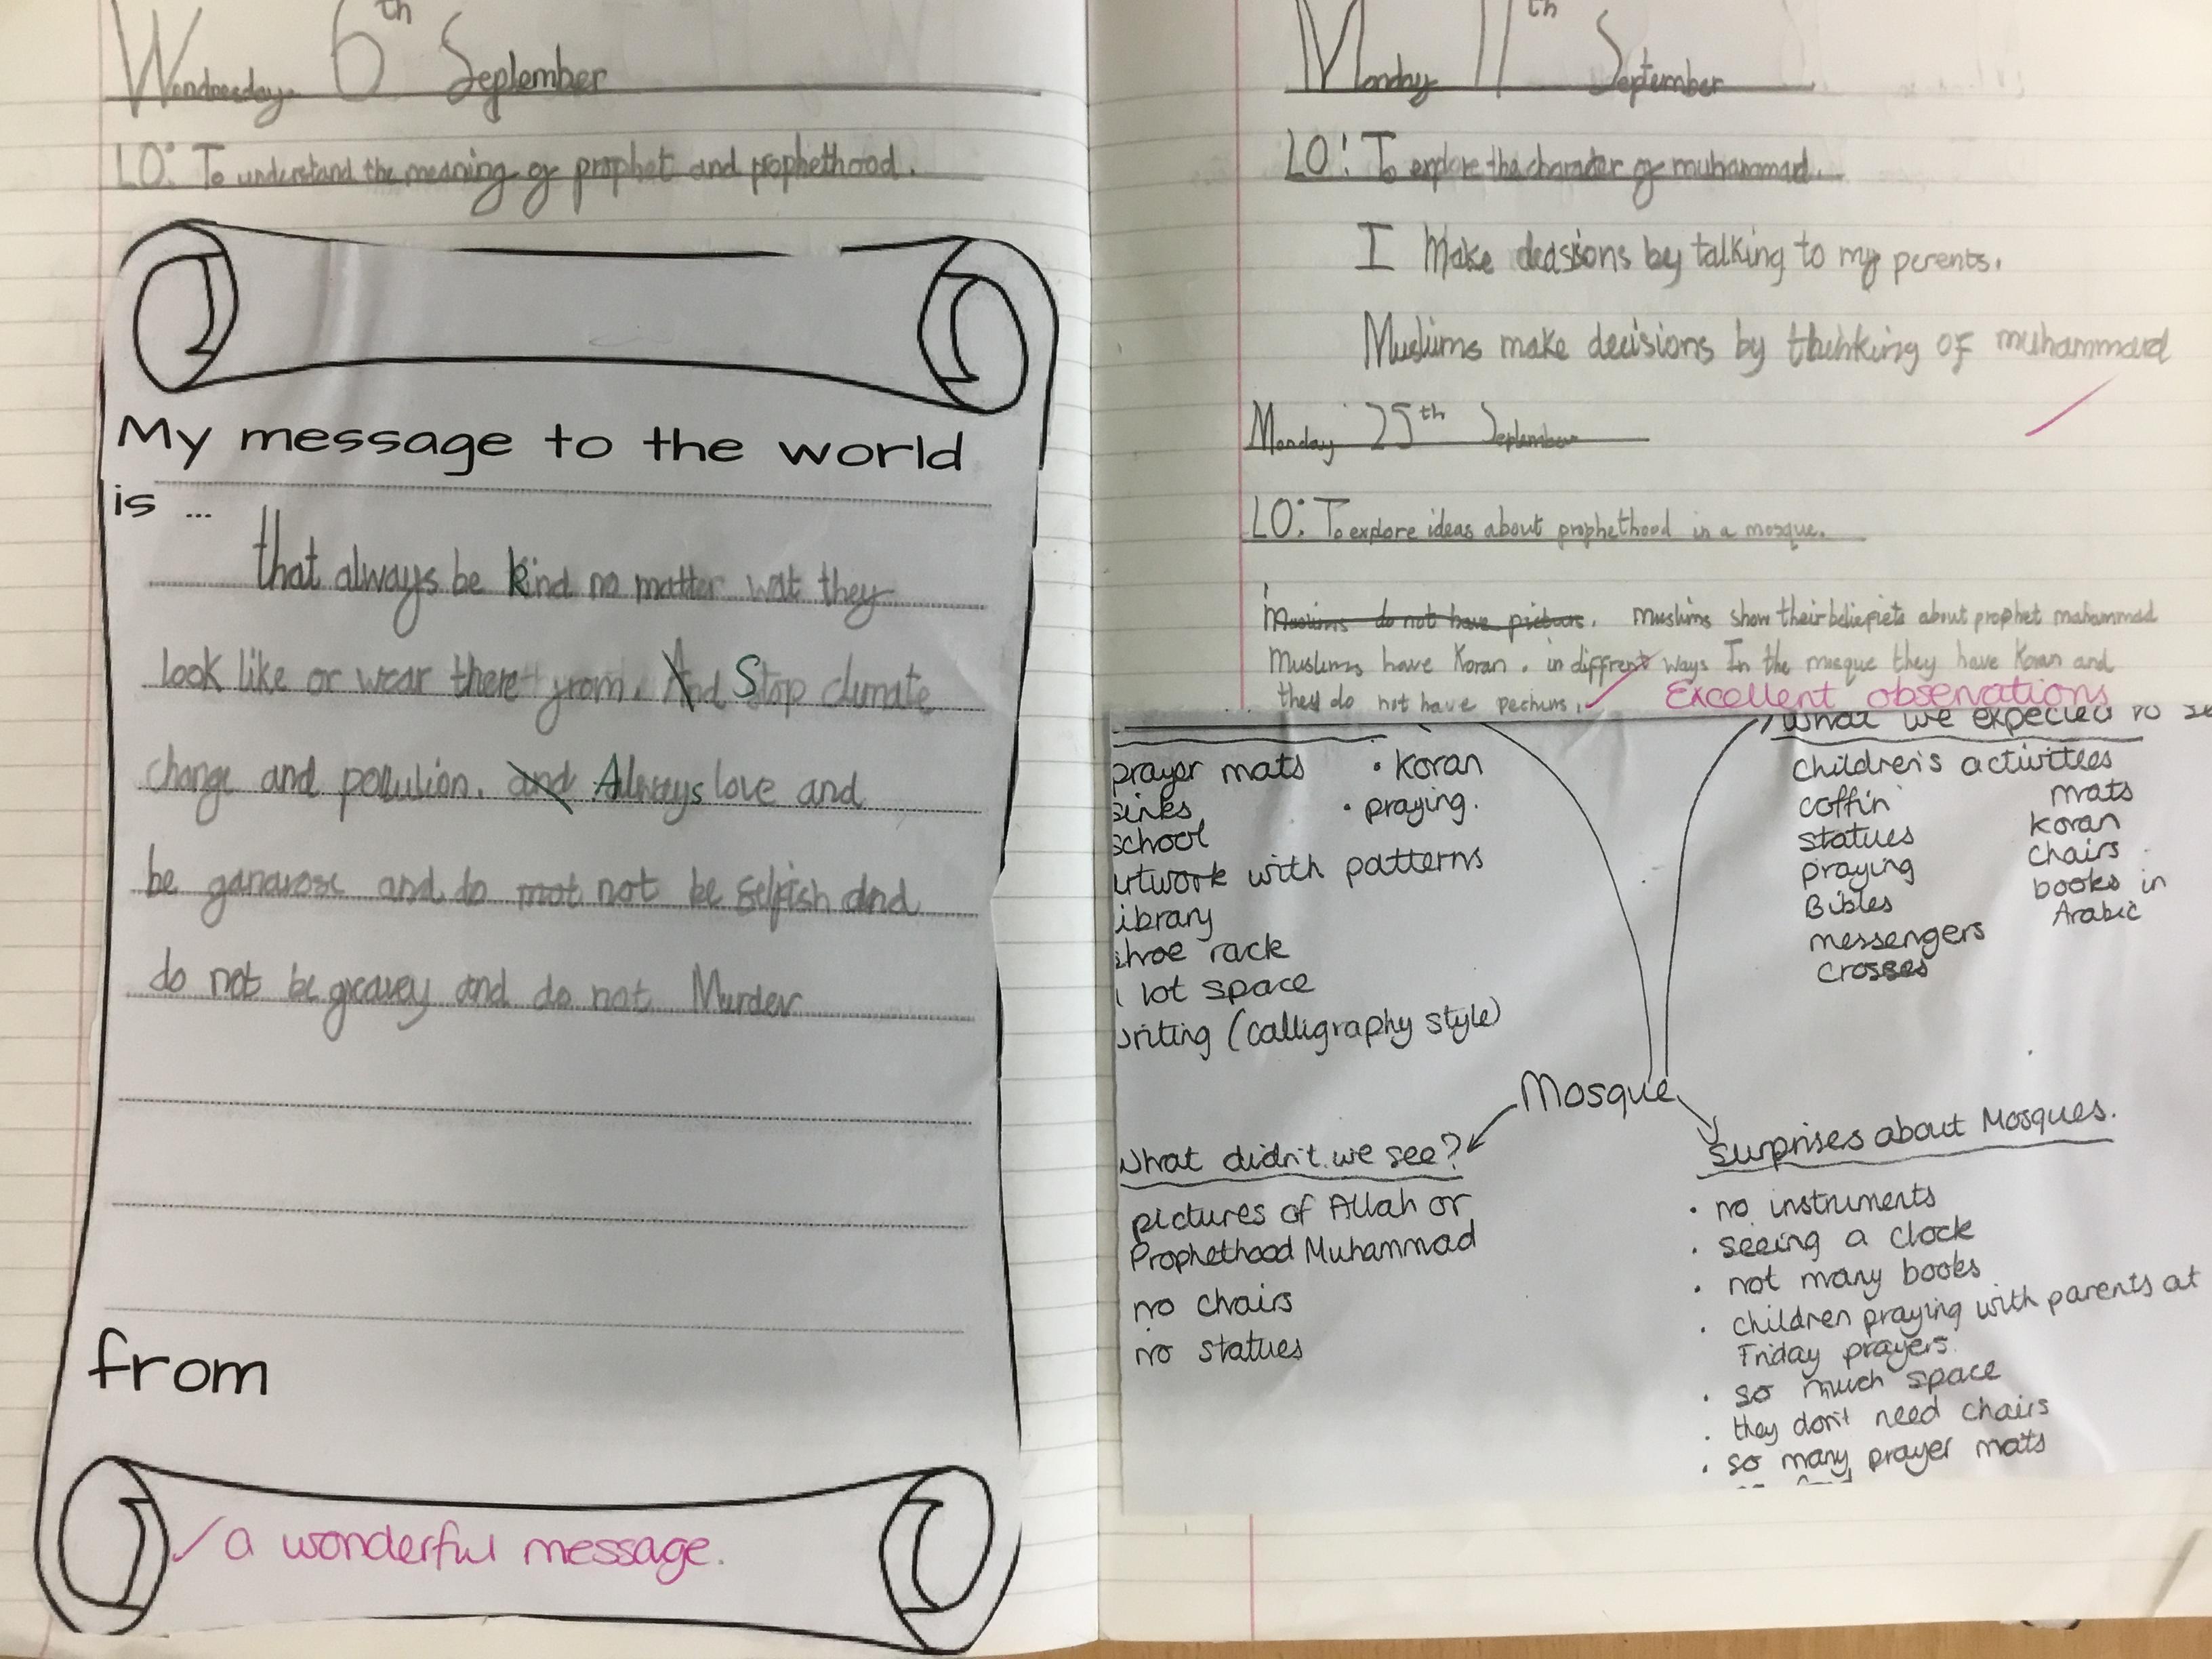 Wendnesday 6th September
LO: To understand the meaning of prophet and prophethood.
My message to the world
is ...
that always be kind no matter wat they
look like or wear there from. And Stop climate
change and pollution. and Always love and
be ganarose and do mot not be selfish and
do not be greavey and do not Murder
from
a wonderful message.
Monday 11th September
LO: To explore the character of muhammad.
I Make decisions by talking to my perents.
Muslims make decisions by thinking of muhammad
Monday 25th September
LO: To explore ideas about prophethood in a mosque.
Muslims do not have picturs. Muslims show their beliefiets about prophet mahammed
Muslims have Koran. in diffrent ways In the mosque they have Koran and
they do not have pechurs.
Excellent observations
prayer mats • Koran
sinks • praying.
school
artwork with patterns
library
shoe rack
a lot space
writing (calligraphy style)
What we expected to se
Children's activities
coffin mats
statues Koran
praying chairs
Bibles books in
messengers Arabic
crosses
Mosque
What didn't we see?
pictures of Allah or
Prophethood Muhammad
no chairs
no statues
Surprises about Mosques.
• no instruments
• seeing a clock
• not many books
• children praying with parents at
Friday prayers.
• so much space
• they don't need chairs
• so many prayer mats